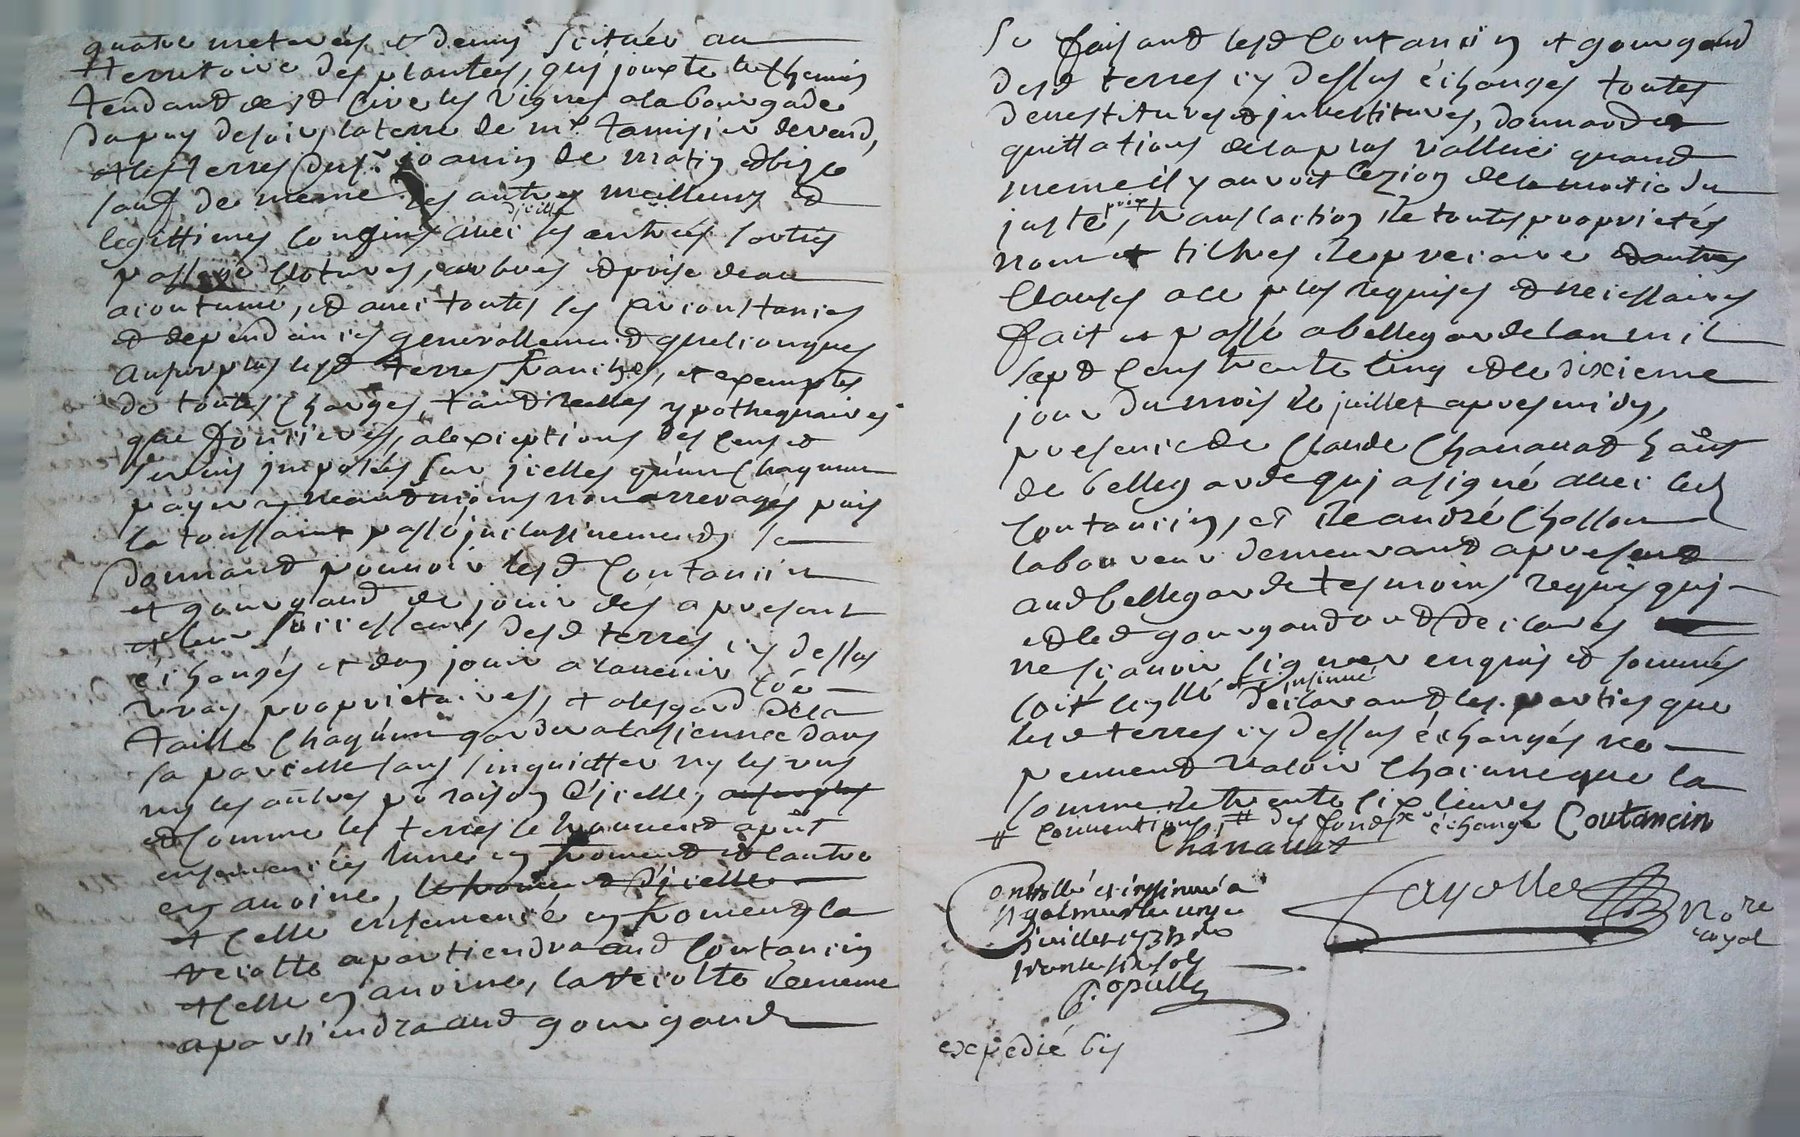 quatre meterées et demy scituée au
territoire des plantées, quj jouxte le chemin
tendant de st Cire les vignes a la bourgade
du puy de soir, la terre de mr. tamisier de vend,
et les terres du sr. joanin de matin et bize
sauf de meme ses autres meilleurs et
legittimes confins avec ses entrées sorties
d'icelle
passage clotures, arbres et prise deau
acoutumé, et avec toutes les circonstances
et dependances generallement quelconques
au surplus lesd terres franches, et exemptes
de toutes charges, tant reelles ypothequaires
que foncieres, a lexceptions des cens et
servis jmposés sur jcelles qu'un chaqun
payera neantmoins non arreragés puis
la toussaint passé jnclusivement, se
donnant pouvoir lesd Coutancin
et gourgaud de jouir dés a present
et leur successeurs desd terres cy dessus
échangés et den jouir a lavenir coe
vrays proprietaires, et alesgard de la
taille chaqún gardera la sienne dans
sa parcelle sans sinquietter ny les uns
ny les autres po raison d'jcelle, au surplus
et comme les terres se trouvent apnt
ensemencés lune en froment et lautre
en avoine, le froment d'jcelle
et celle ensemencé en froment la
recolte apartiendra aud Coutancin
et celle en avoine, la recolte de meme
apartiendra aud gourgaud
Se faisant lesd Coutancin et gourgaud
desd terres cy dessus échanges toutes
devestitures et jnvestitures, donnant
quittations de la plus vallue quand
meme il y auroit lezion de la moitie du
juste prix, translaction de toutes proprietés
nom et tiltres de precaire et autres
Clauses a ce plus requises et necessaires
fait et passé a bellegarde lan mil
sept cens trente cinq et le dixieme
jour du mois de juillet apres midy,
presence de Claude Chanauat hoste
de bellegarde quj a signé avec led
Coutancin, et de andré Chollon
laboureur demeurant a present
aud bellegarde tesmoins requis quj
et led gourgaud ont declarés
ne scavoir signer enquis et sommés
soit c̃ollé et jnsinué declarant les parties que
lesd terres cy dessus échangés ne
peuvent valoir chacune que la
somme de trente six livres
# conventions, # des fonds échange Coutancin
Chanauat
Controllé et jnsinué a
st galmier le unze
juillet 1735 Reçu
trente six sols
Fayolle Nore
royal
expedié bis